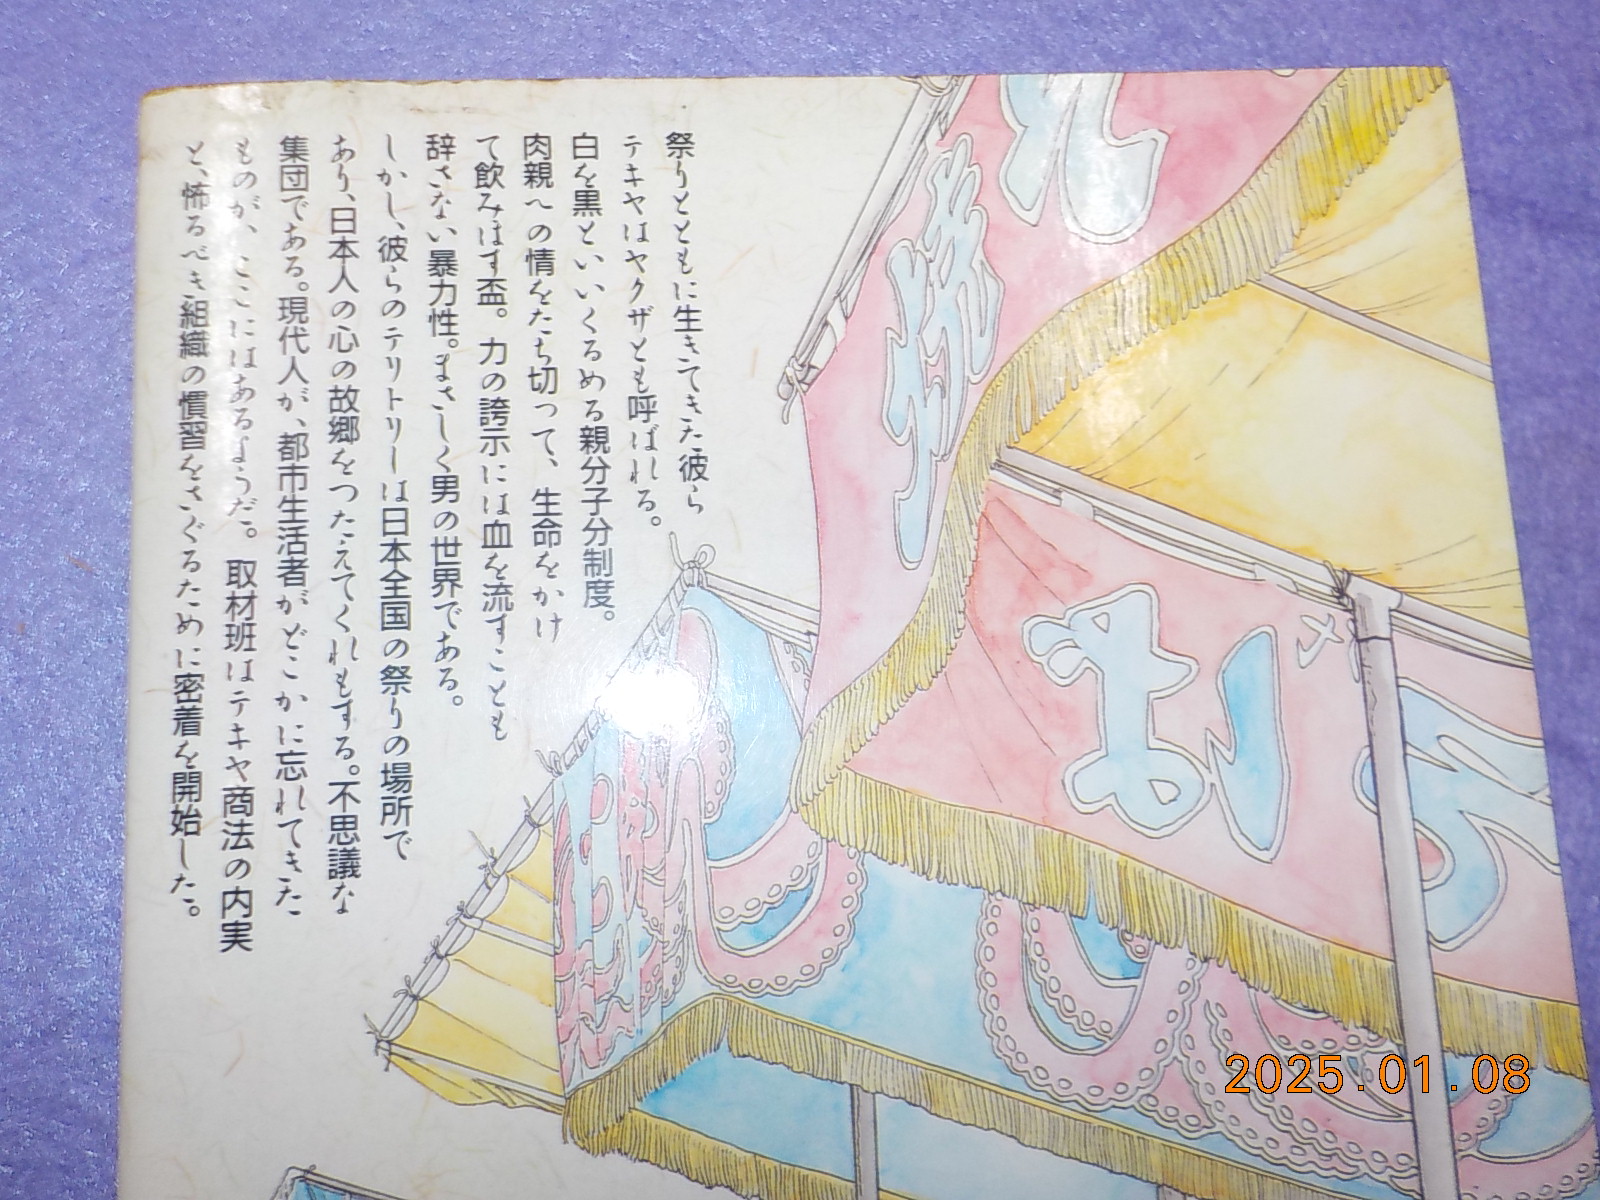 祭りとともに生きてきた彼ら
テキヤはヤクザとも呼ばれる。
白を黒といいくるめる親分子分制度。
肉親への情をたち切って、生命をかけ
て飲みほす盃。力の誇示には血を流すことも
辞さない暴力性。まさしく男の世界である。
しかし、彼らのテリトリーは日本全国の祭りの場所で
あり、日本人の心の故郷をつたえてくれもする。不思議な
集団である。現代人が、都市生活者がどこかに忘れてきた
ものが、ここにはあるようだ。取材班はテキヤ商法の内実
と、怖るべき組織の慣習をさぐるために密着を開始した。
焼
お
2025.01.08